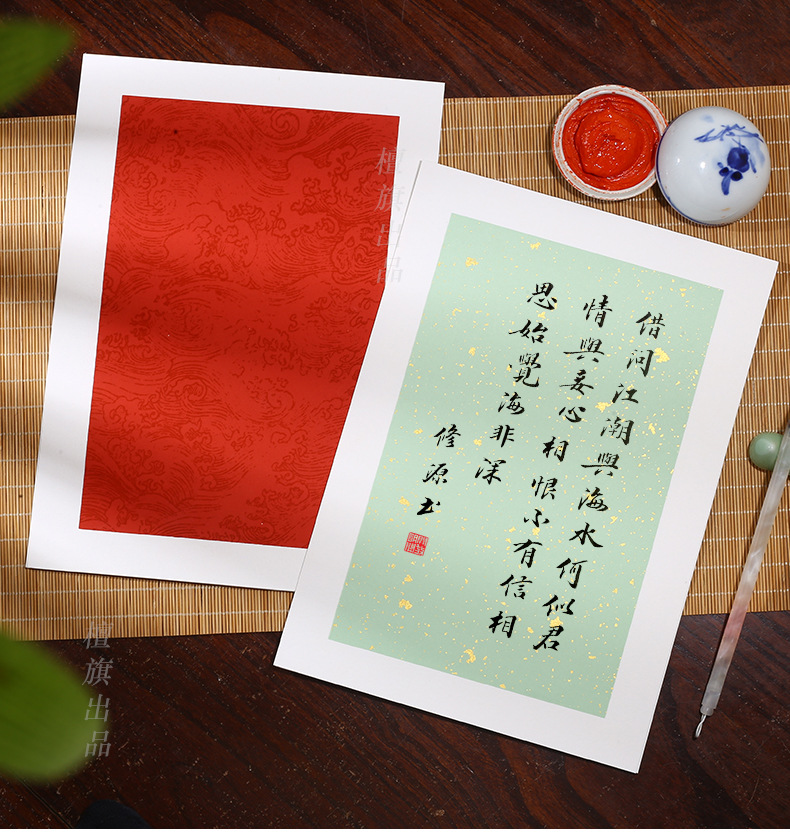 借问江潮與海水何似君
情與妾心相恨不有信相
思始覺海非深
修源书
檀旗出品
檀旗出品